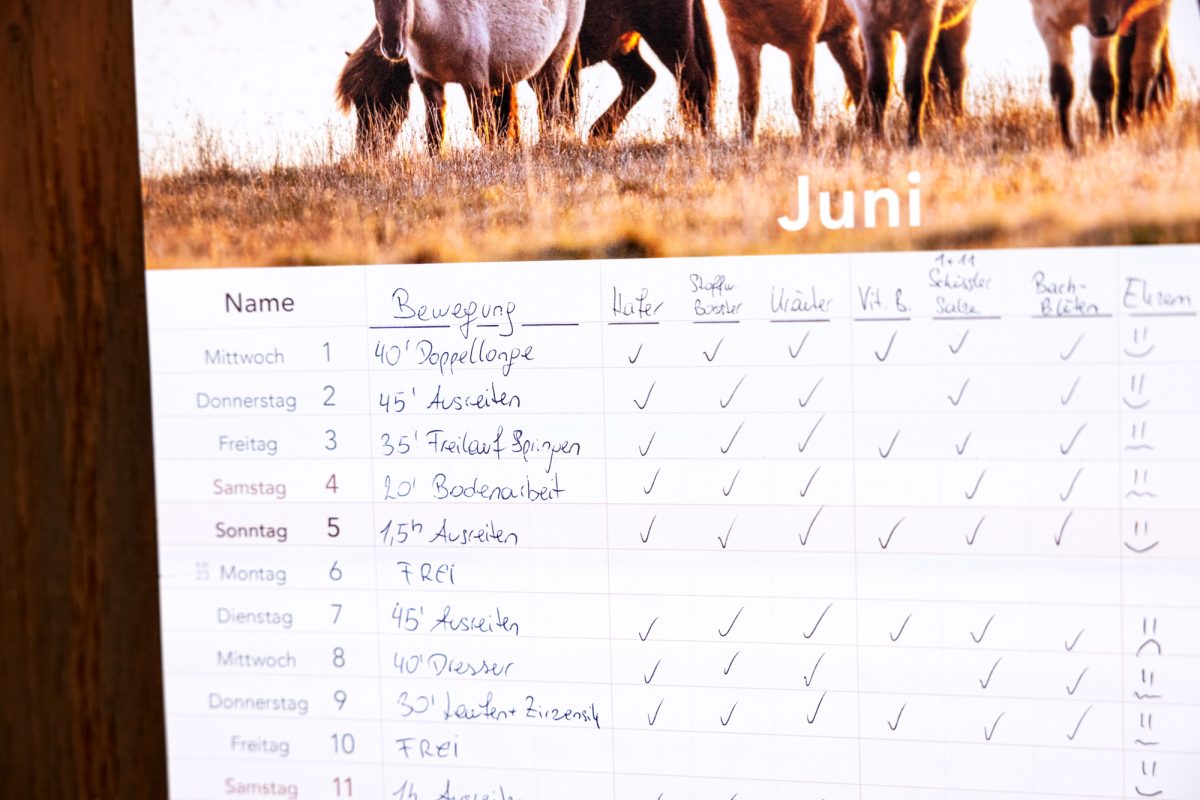 Juni
Name Bewegung Hafer Stoffw. Booster Kräuter Vit. B. 1+11 Schüssler Salze Bach-Blüten
Mittwoch 1 40' Doppellonge ✓ ✓ ✓ ✓ ✓ ✓
Donnerstag 2 45' Ausreiten ✓ ✓ ✓ ✓ ✓
Freitag 3 35' Freilauf Springen ✓ ✓ ✓ ✓ ✓ ✓
Samstag 4 20' Bodenarbeit ✓ ✓ ✓ ✓ ✓
Sonntag 5 1,5h Ausreiten ✓ ✓ ✓ ✓ ✓ ✓
Montag 6 FREI
Dienstag 7 45' Ausreiten ✓ ✓ ✓ ✓ ✓ ✓
Mittwoch 8 40' Dressur ✓ ✓ ✓ ✓ ✓
Donnerstag 9 30' Laufen + ✓ ✓ ✓ ✓ ✓ ✓
Freitag 10 FREI
Samstag 11 1h Ausreiten